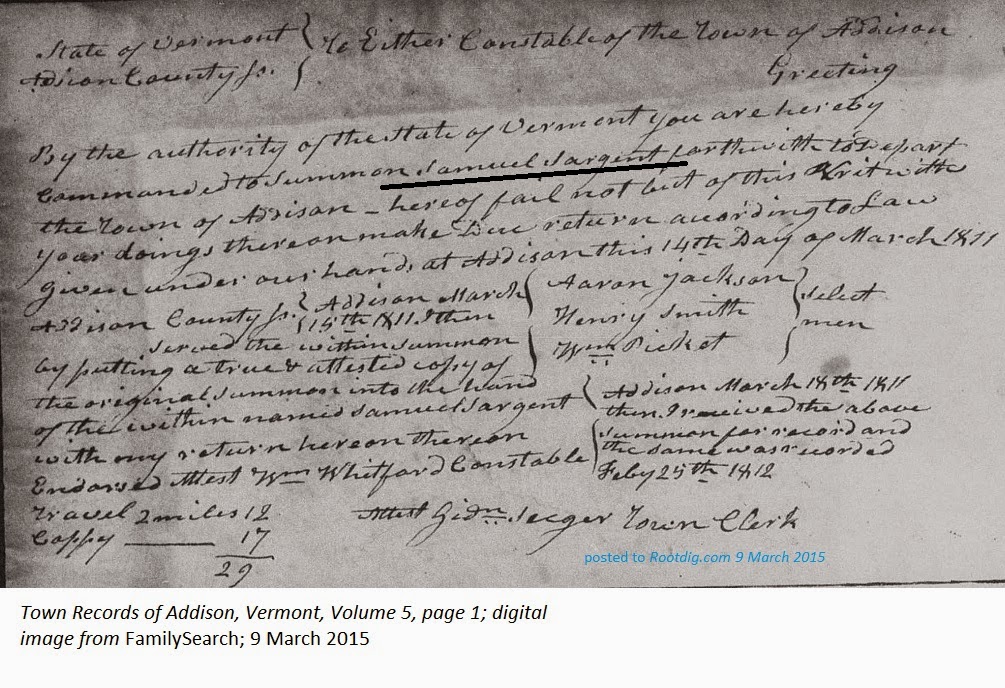 State of Vermont } To Either Constable of the Town of Addison
Addison County Ss. } Greeting
By the authority of the State of Vermont you are hereby
Commanded to Summon Samuel Sargent forthwith to Depart
the Town of Addison – hereof fail not but of this Writ with
your doings thereon make Due return according to Law
Given under our hands at Addison this 14th Day of March 1811
Aaron Jackson
Henry Smith
Wm Picket
} Select
men
Addison County Ss. { Addison March
15th 1811. I then
served the within summon
by putting a true & attested copy of
the original summon into the hand
of the within named Samuel Sargent
with my return hereon thereon
Endorsed Attest Wm Whitford Constable
Travel 2 miles 12
Coppy —— 17
29
Addison March 18th 1811
then I received the above
summon for record and
the same was recorded
Feby 25th 1812
Attest Gidn Seeger Town Clerk
posted to Rootdig.com 9 March 2015
Town Records of Addison, Vermont, Volume 5, page 1; digital
image from FamilySearch; 9 March 2015